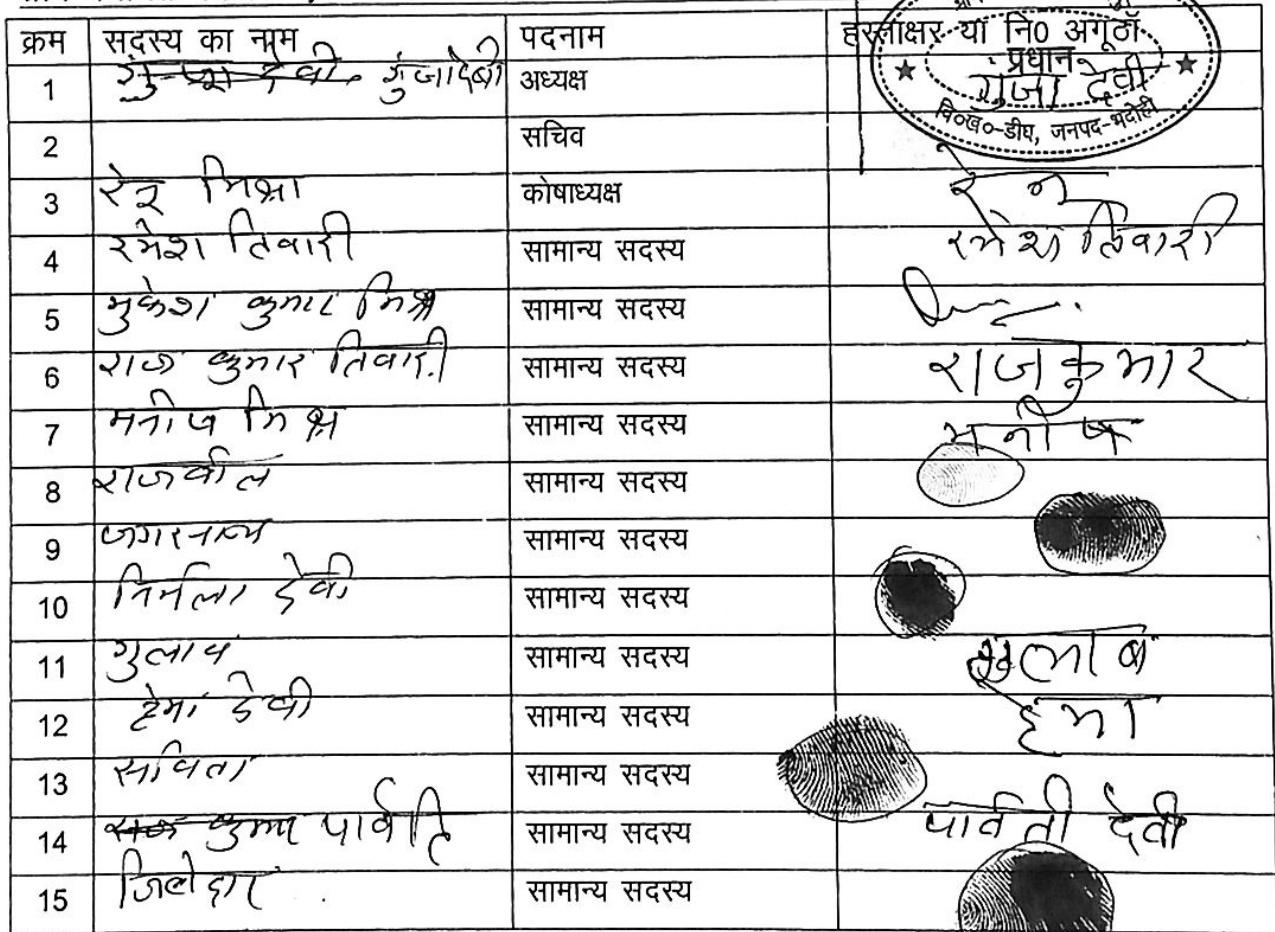 क्रम सदस्य का नाम पदनाम हस्ताक्षर या नि0 अगूठाँ
प्रधान
गुंजा देवी
वि०ख०-डीघ, जनपद-भदोही
1 देवी गुंजादेवी अध्यक्ष
2 सचिव
3 रेनू मिश्रा कोषाध्यक्ष रेनू
4 रमेश तिवारी सामान्य सदस्य रमेश तिवारी
5 मुकेश कुमार मिश्र सामान्य सदस्य
6 राज कुमार तिवारी सामान्य सदस्य राजकुमार
7 मनीष मिश्र सामान्य सदस्य मनीष
8 सामान्य सदस्य
9 जगरनाथ सामान्य सदस्य
10 निर्मला देवी सामान्य सदस्य
11 गुलाब सामान्य सदस्य गुलाब
12 हेमा देवी सामान्य सदस्य हेमा
13 सविता सामान्य सदस्य
14 कुमार पार्वति सामान्य सदस्य पार्वती देवी
15 जिलेदार सामान्य सदस्य